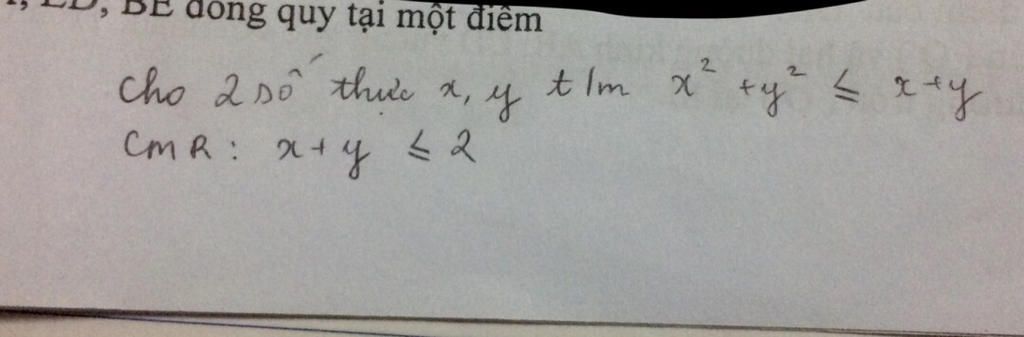 , BE đồng quy tại một điểm
Cho 2 số thực x, y t/m x² + y² ≤ x + y
CMR: x + y ≤ 2